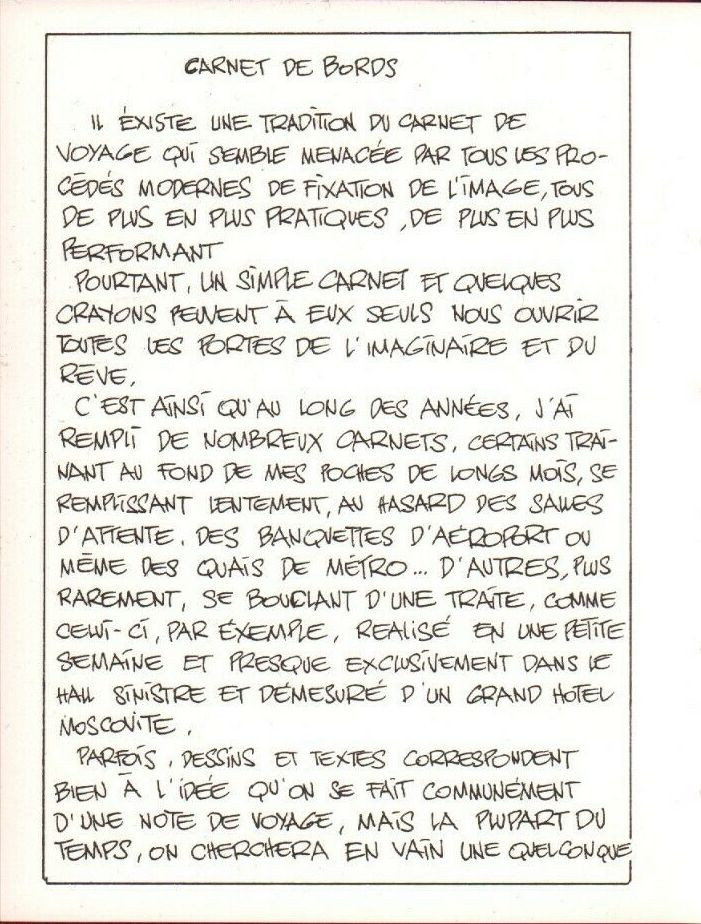 CARNET DE BORDS
IL ÉXISTE UNE TRADITION DU CARNET DE
VOYAGE QUI SEMBLE MENACÉE PAR TOUS LES PRO-
CÉDÉS MODERNES DE FIXATION DE L'IMAGE, TOUS
DE PLUS EN PLUS PRATIQUES, DE PLUS EN PLUS
PERFORMANT
POURTANT, UN SIMPLE CARNET ET QUELQUES
CRAYONS PEUVENT À EUX SEULS NOUS OUVRIR
TOUTES LES PORTES DE L'IMAGINAIRE ET DU
RÊVE,
C'EST AINSI QU'AU LONG DES ANNÉES, J'AI
REMPLI DE NOMBREUX CARNETS, CERTAINS TRAI-
NANT AU FOND DE MES POCHES DE LONGS MOIS, SE
REMPLISSANT LENTEMENT, AU HASARD DES SALLES
D'ATTENTE, DES BANQUETTES D'AÉROPORT OU
MÊME DES QUAIS DE MÉTRO... D'AUTRES, PLUS
RAREMENT, SE BOUCLANT D'UNE TRAITE, COMME
CELUI-CI, PAR ÉXEMPLE, REALISÉ EN UNE PETITE
SEMAINE ET PRESQUE EXCLUSIVEMENT DANS LE
HALL SINISTRE ET DÉMESURÉ D'UN GRAND HOTEL
MOSCOVITE,
PARFOIS, DESSINS ET TEXTES CORRESPONDENT
BIEN À L'IDÉE QU'ON SE FAIT COMMUNÉMENT
D'UNE NOTE DE VOYAGE, MAIS LA PLUPART DU
TEMPS, ON CHERCHERA EN VAIN UNE QUELCONQUE